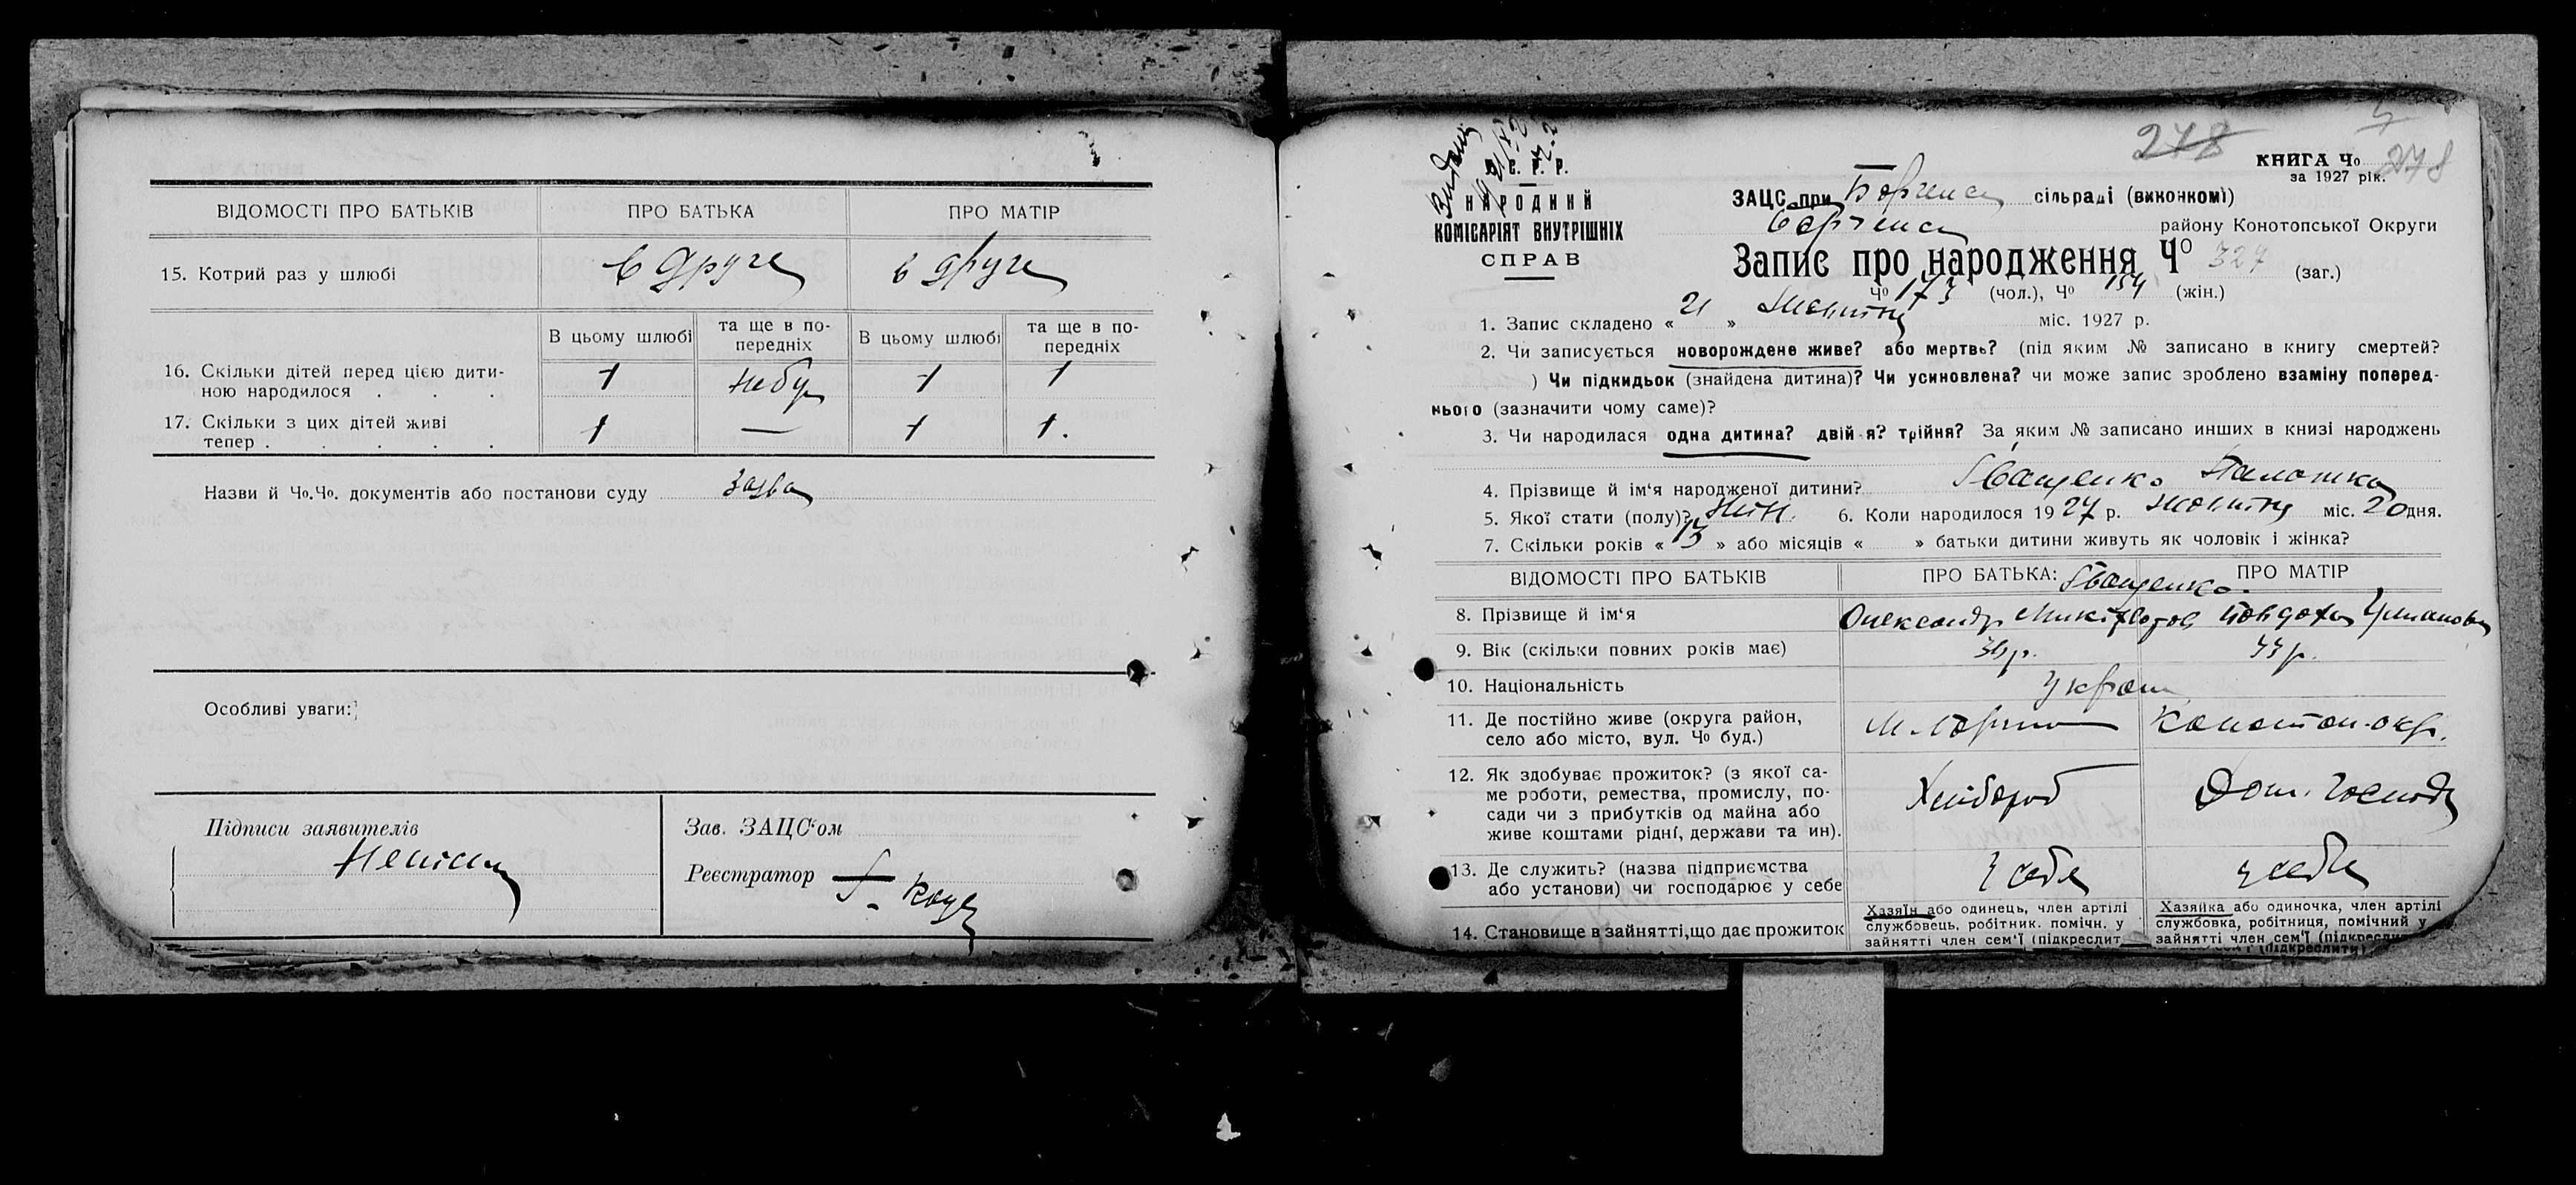 ВІДОМОСТІ ПРО БАТЬКІВ ПРО БАТЬКА ПРО МАТІР
15. Котрий раз у шлюбі в друге в друге
В цьому шлюбі та ще в по-передніх В цьому шлюбі та ще в по-передніх
16. Скільки дітей перед цією дити-
ною народилося . . . 1 небу 1 1
17. Скільки з цих дітей живі
тепер . . . . . 1 — 1 1.
Назви й Чо.Чо. документів або постанови суду заява
Особливі уваги:
Підписи заявителів
Неписм
Зав. ЗАЦС'ом
Реєстратор
278
КНИГА Чо 278
за 1927 рік.
С. Р. Р.
НАРОДНИЙ
КОМІСАРІЯТ ВНУТРІШНІХ
СПРАВ
ЗАЦС при Борзенс сільраді (виконкомі)
Борзенс району Конотопської Округи
Запис про народження Чо 327 (заг.)
Чо 173 (чол.), Чо 154 (жін.)
1. Запис складено « 21 » Жовтня міс. 1927 р.
2. Чи записується новорождене живе? або мертве? (під яким № записано в книгу смертей?
) Чи підкидьок (знайдена дитина)? Чи усиновлена? чи може запис зроблено взаміну поперед-
нього (зазначити чому саме)?
3. Чи народилася одна дитина? двійня? трійня? За яким № записано инших в книзі народжень
4. Прізвище й ім'я народженої дитини? Іващенко Палажка
5. Якої стати (полу)? жін. 6. Коли народилося 1927 р. Жовтня міс. 20 дня.
7. Скільки років « 13 » або місяців « » батьки дитини живуть як чоловік і жінка?
ВІДОМОСТІ ПРО БАТЬКІВ ПРО БАТЬКА: ПРО МАТІР
Іващенко.
8. Прізвище й ім'я Олександр
9. Вік (скільки повних років має) 36 р. 44 р.
10. Національність Україн
11. Де постійно живе (округа район,
село або місто, вул. Чо буд.) М. Борзна Конотоп. окр.
12. Як здобуває прожиток? (з якої са-
ме роботи, ремества, промислу, по-
сади чи з прибутків од майна або
живе коштами рідні, держави та ин). Хлібороб Дом. господ
13. Де служить? (назва підприємства
або установи) чи господарює у себе у себе у себе
14. Становище в зайнятті, що дає прожиток
Хазяїн або одинець, член артілі
службовець, робітник. помічн. у
зайнятті член сем'ї (підкреслит
Хазяйка або одиночка, член артілі
службовка, робітниця, помічний у
зайнятті член сем'ї (підкреслити)